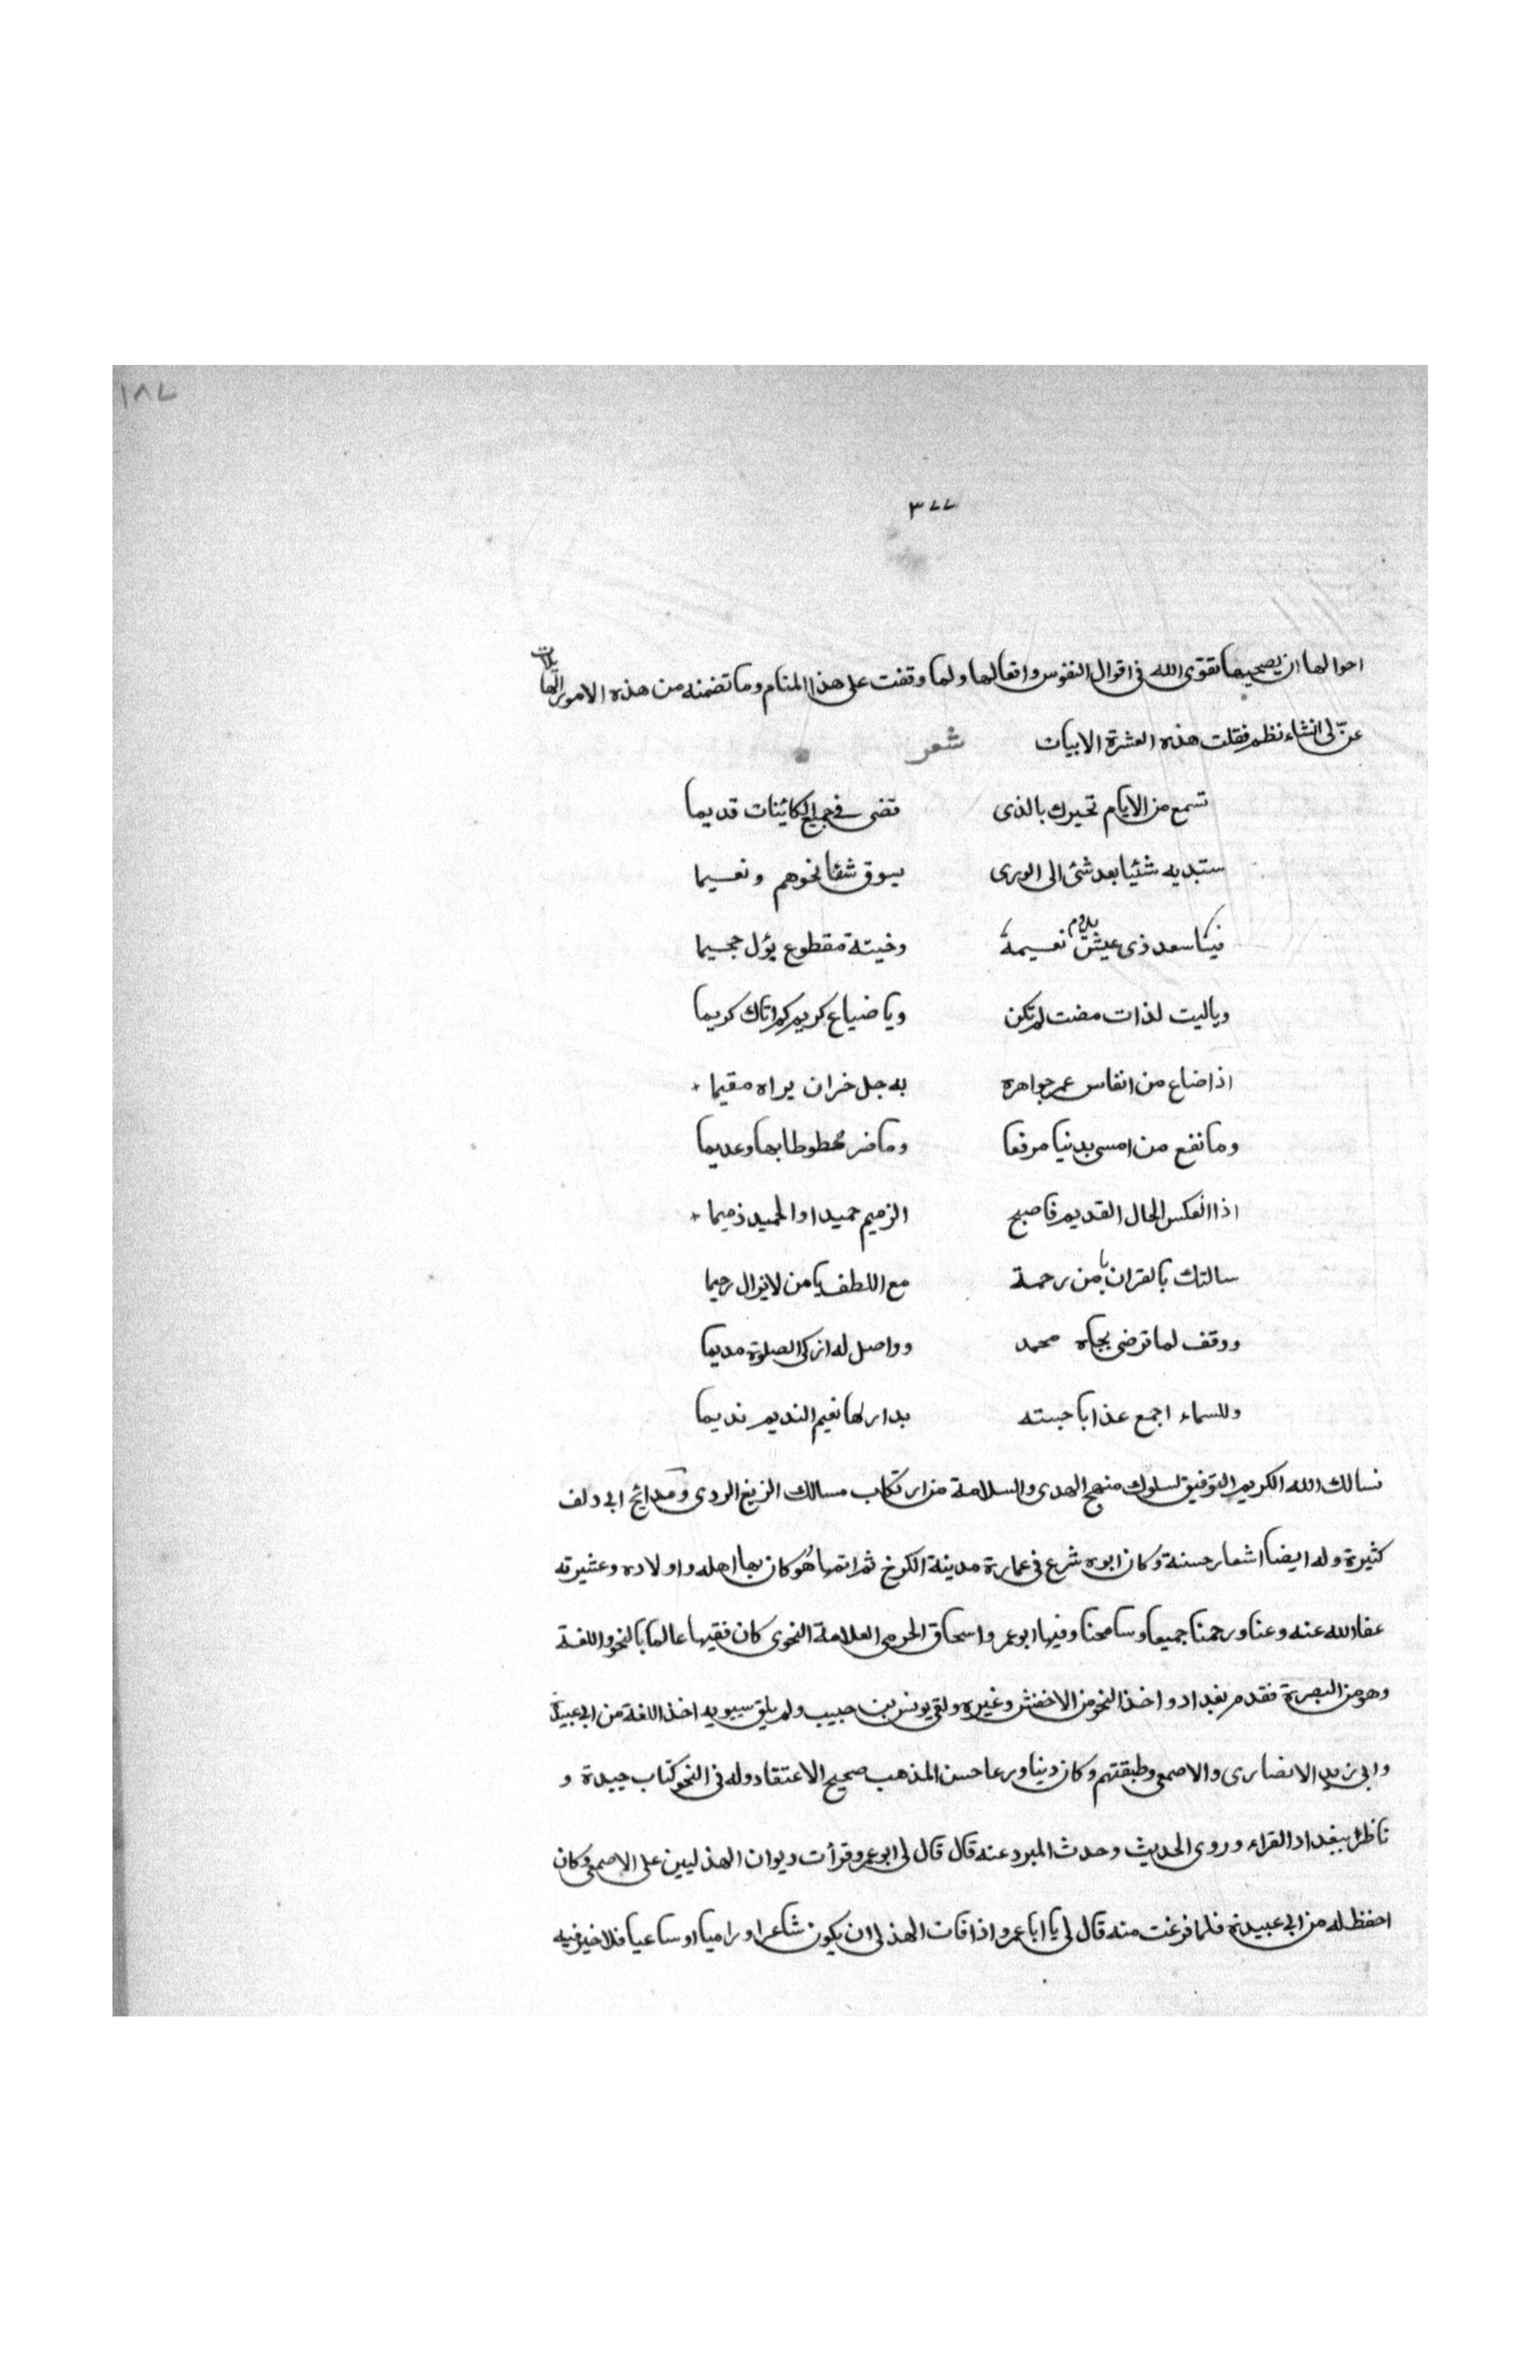 ١٨٧
٣٧٧
احوالها ان يصحيها تقوى الله فى اقوال النفوس وافعالها ولما وقفت على هذا المنام وما تضمنه من هذه الامور الهائلات
عنّ لى انشاء نظم فقلت هذه العشرة الابيات شعر
تسمع من الايام تخبرك بالذى قضى فى جميع الكائنات قديما
ستبديه شئيا بعد شئ الى الورى يسوق شقا نحوهم ونعيما
فيا سعد ذى عيش يدوم نعيمه وخيبة مقطوع يؤل جحيما
وياليت لذات مضت لم تكن ويا ضياع كريم كم اتاك كريما
اذا ضاع من انفاس عمر جواهره به جل خران يراه مقيما
وما نفع من امسى بدنيا مرفعا وما ضر محطوطا بها وعديما
اذا انعكس الحال القديم فاصبح الزميم حميدا والحميد ذميما
سالتك بالقران يا من رحمة مع اللطف يا من لا يزال رحيما
ووقف لما ترضى بجاه محمد وواصل له ازكى الصلوة مديما
وللسماء اجمع عذابا جسته بدار لها نعيم النديم نديما
نسالك الله الكريم التوفيق لسلوك منهج الهدى والسلامة من ارتكاب مسالك الزيغ الردى ومدائح ابى دلف
كثيرة وله ايضا اشعار حسنة وكان ابوه شرع فى عمارة مدينة الكرخ ثم اتمها هو وكان بها اهله واولاده وعشيرته
عفا الله عنه وعنا ورحمنا جميعا وسامحنا وفيها ابو عمر واسحاق الجرمى العلامة النحوى كان فقيها عالما بالنحو واللغة
وهو من البصرة فقدم بغداد واخذ النحو من الاخفش وغيره ولقى يونس بن حبيب ولم يلق سيبويه اخذ اللغة من ابى عبيدة
وابى زيد الانصارى والاصمعى وطبقتهم وكان دينا ورعا حسن المذهب صحيح الاعتقاد وله فى النحو كتاب جيدة و
ناظر ببغداد القراء وروى الحديث وحدث المبرد عنه قال قال لى ابو عمرو قرأت ديوان الهذليين على الاصمعى وكان
احفظ له من ابى عبيدة فلما فرغت منه قال لى يا ابا عمرو اذا فات الهذلى ان يكون شاعرا وراميا او ساعيا فلا خير فيه